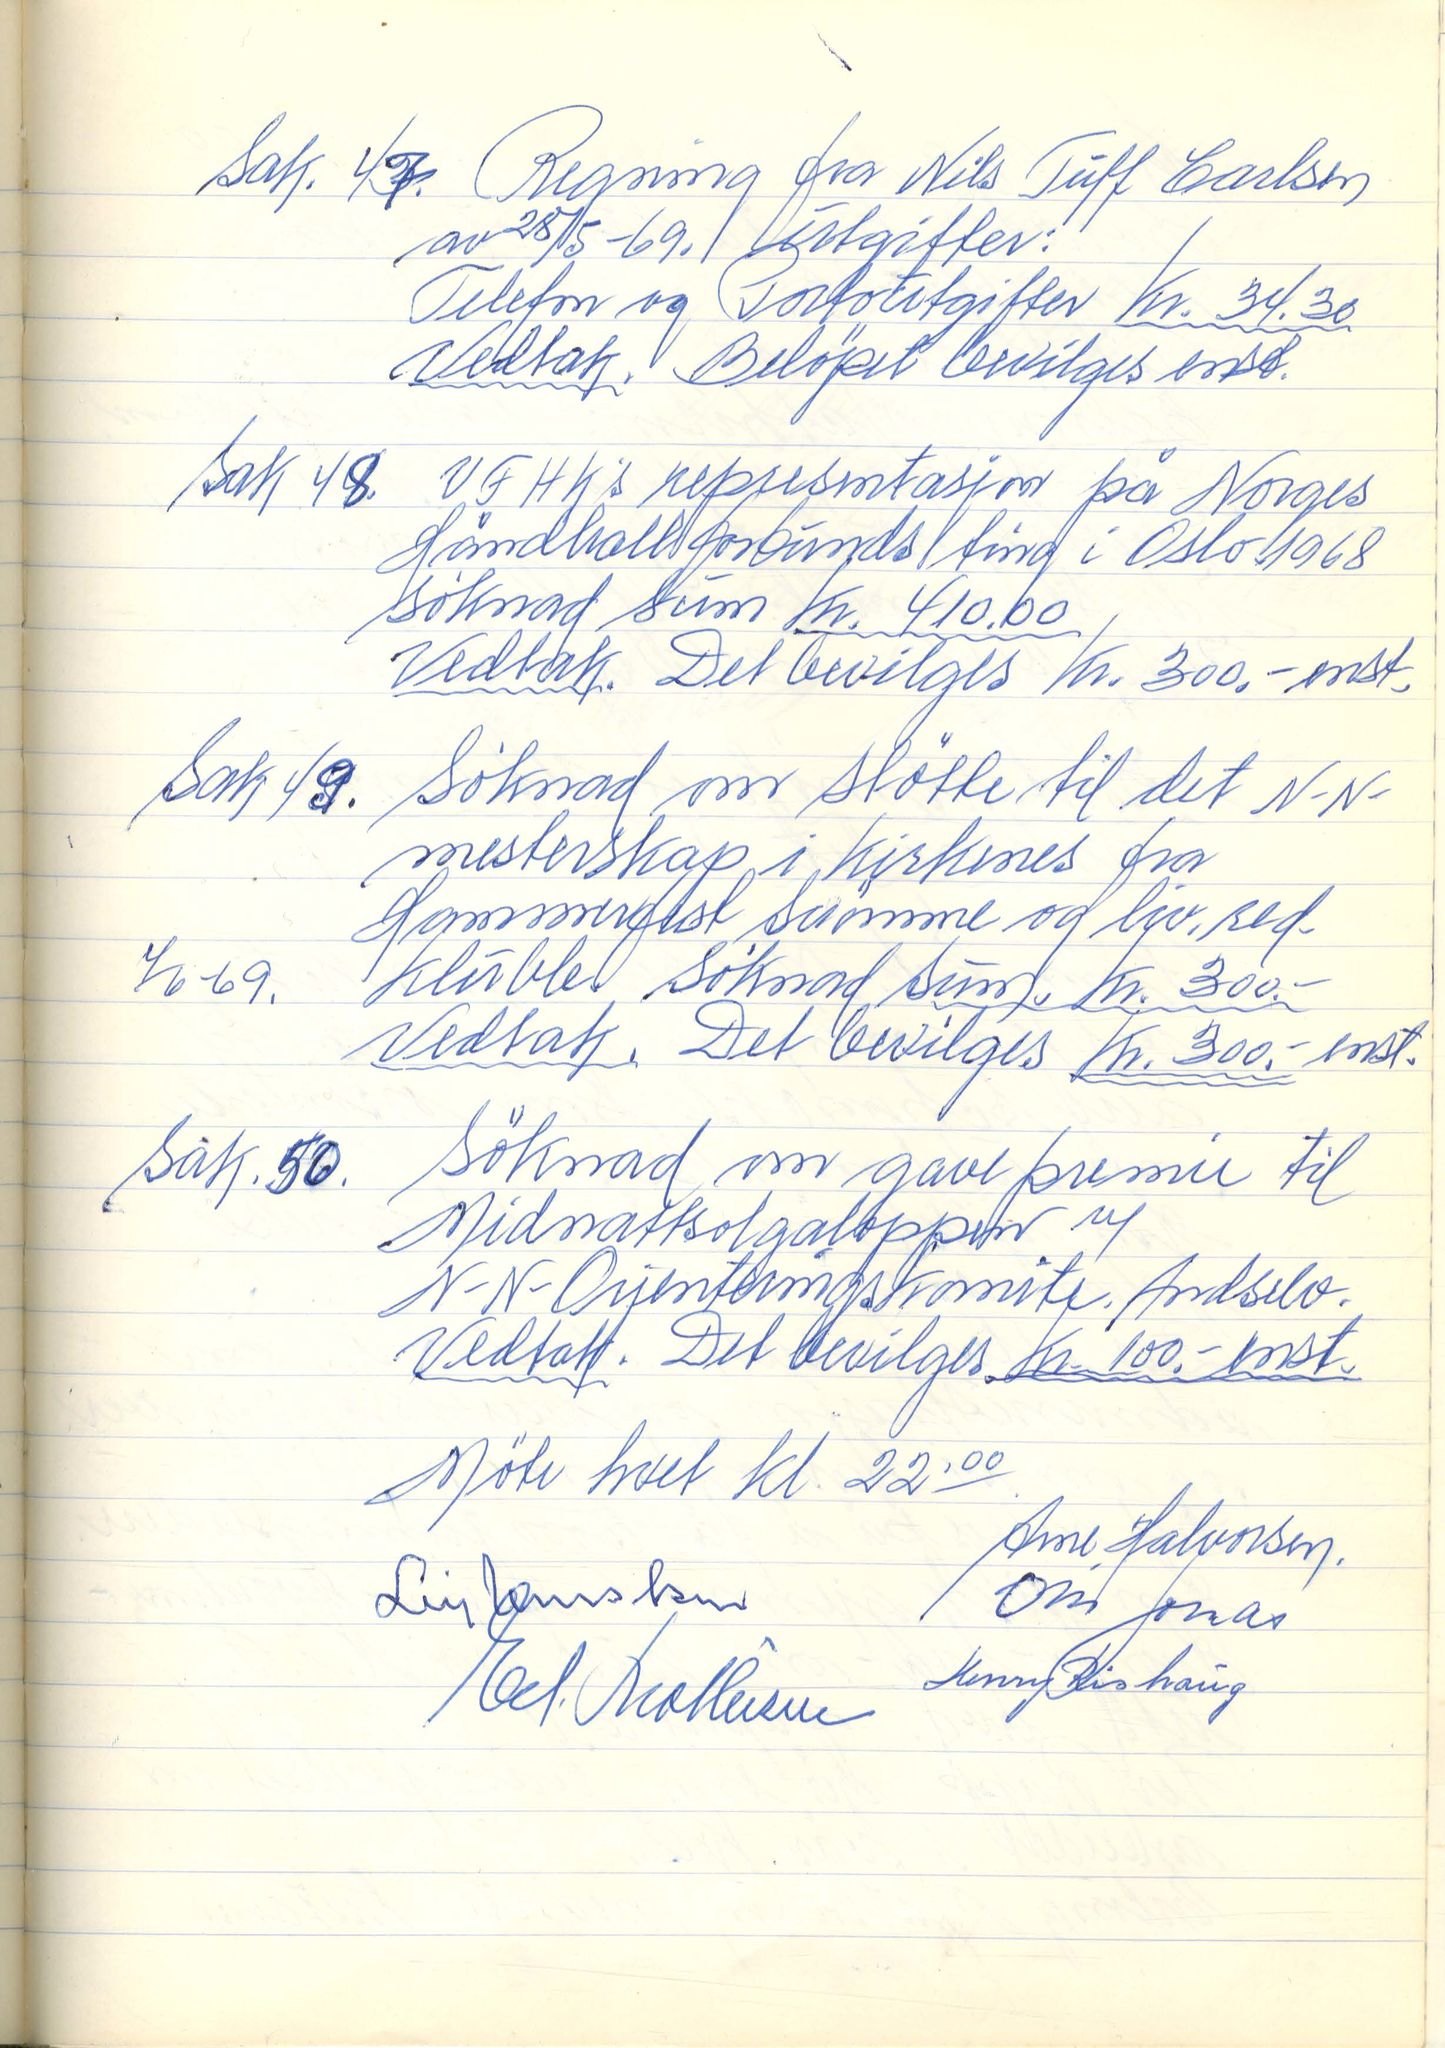 Sak. 47. Regning fra Nils Tuff Carlsen
av 28/5-69. Utgifter:
Telefon og Portoutgifter Kr. 34.30
Vedtak. Belöpet bevilges enst.
Sak 48. VFHK's representasjon på Norges
Håndballforbunds ting i Oslo 1968
Söknad sum Kr. 410.00
Vedtak. Det bevilges Kr. 300.- enst.
Sak 49. Söknad om stötte til det N-N-
mesterskap i Kirkenes fra
Hammerfest Svömme og liv.red.
klubb. Söknad sum. Kr. 300.-
Vedtak. Det bevilges Kr. 300.- enst.
Sak. 50. Söknad om gavepremie til
Midnattsolgaloppen v/
N-N-Orienteringskomite. Andselv.
Vedtak. Det bevilges Kr. 100.- enst.
Möte hvet kl. 22.00
Arne Halvorsen.
Jonas
Henry Rishaug